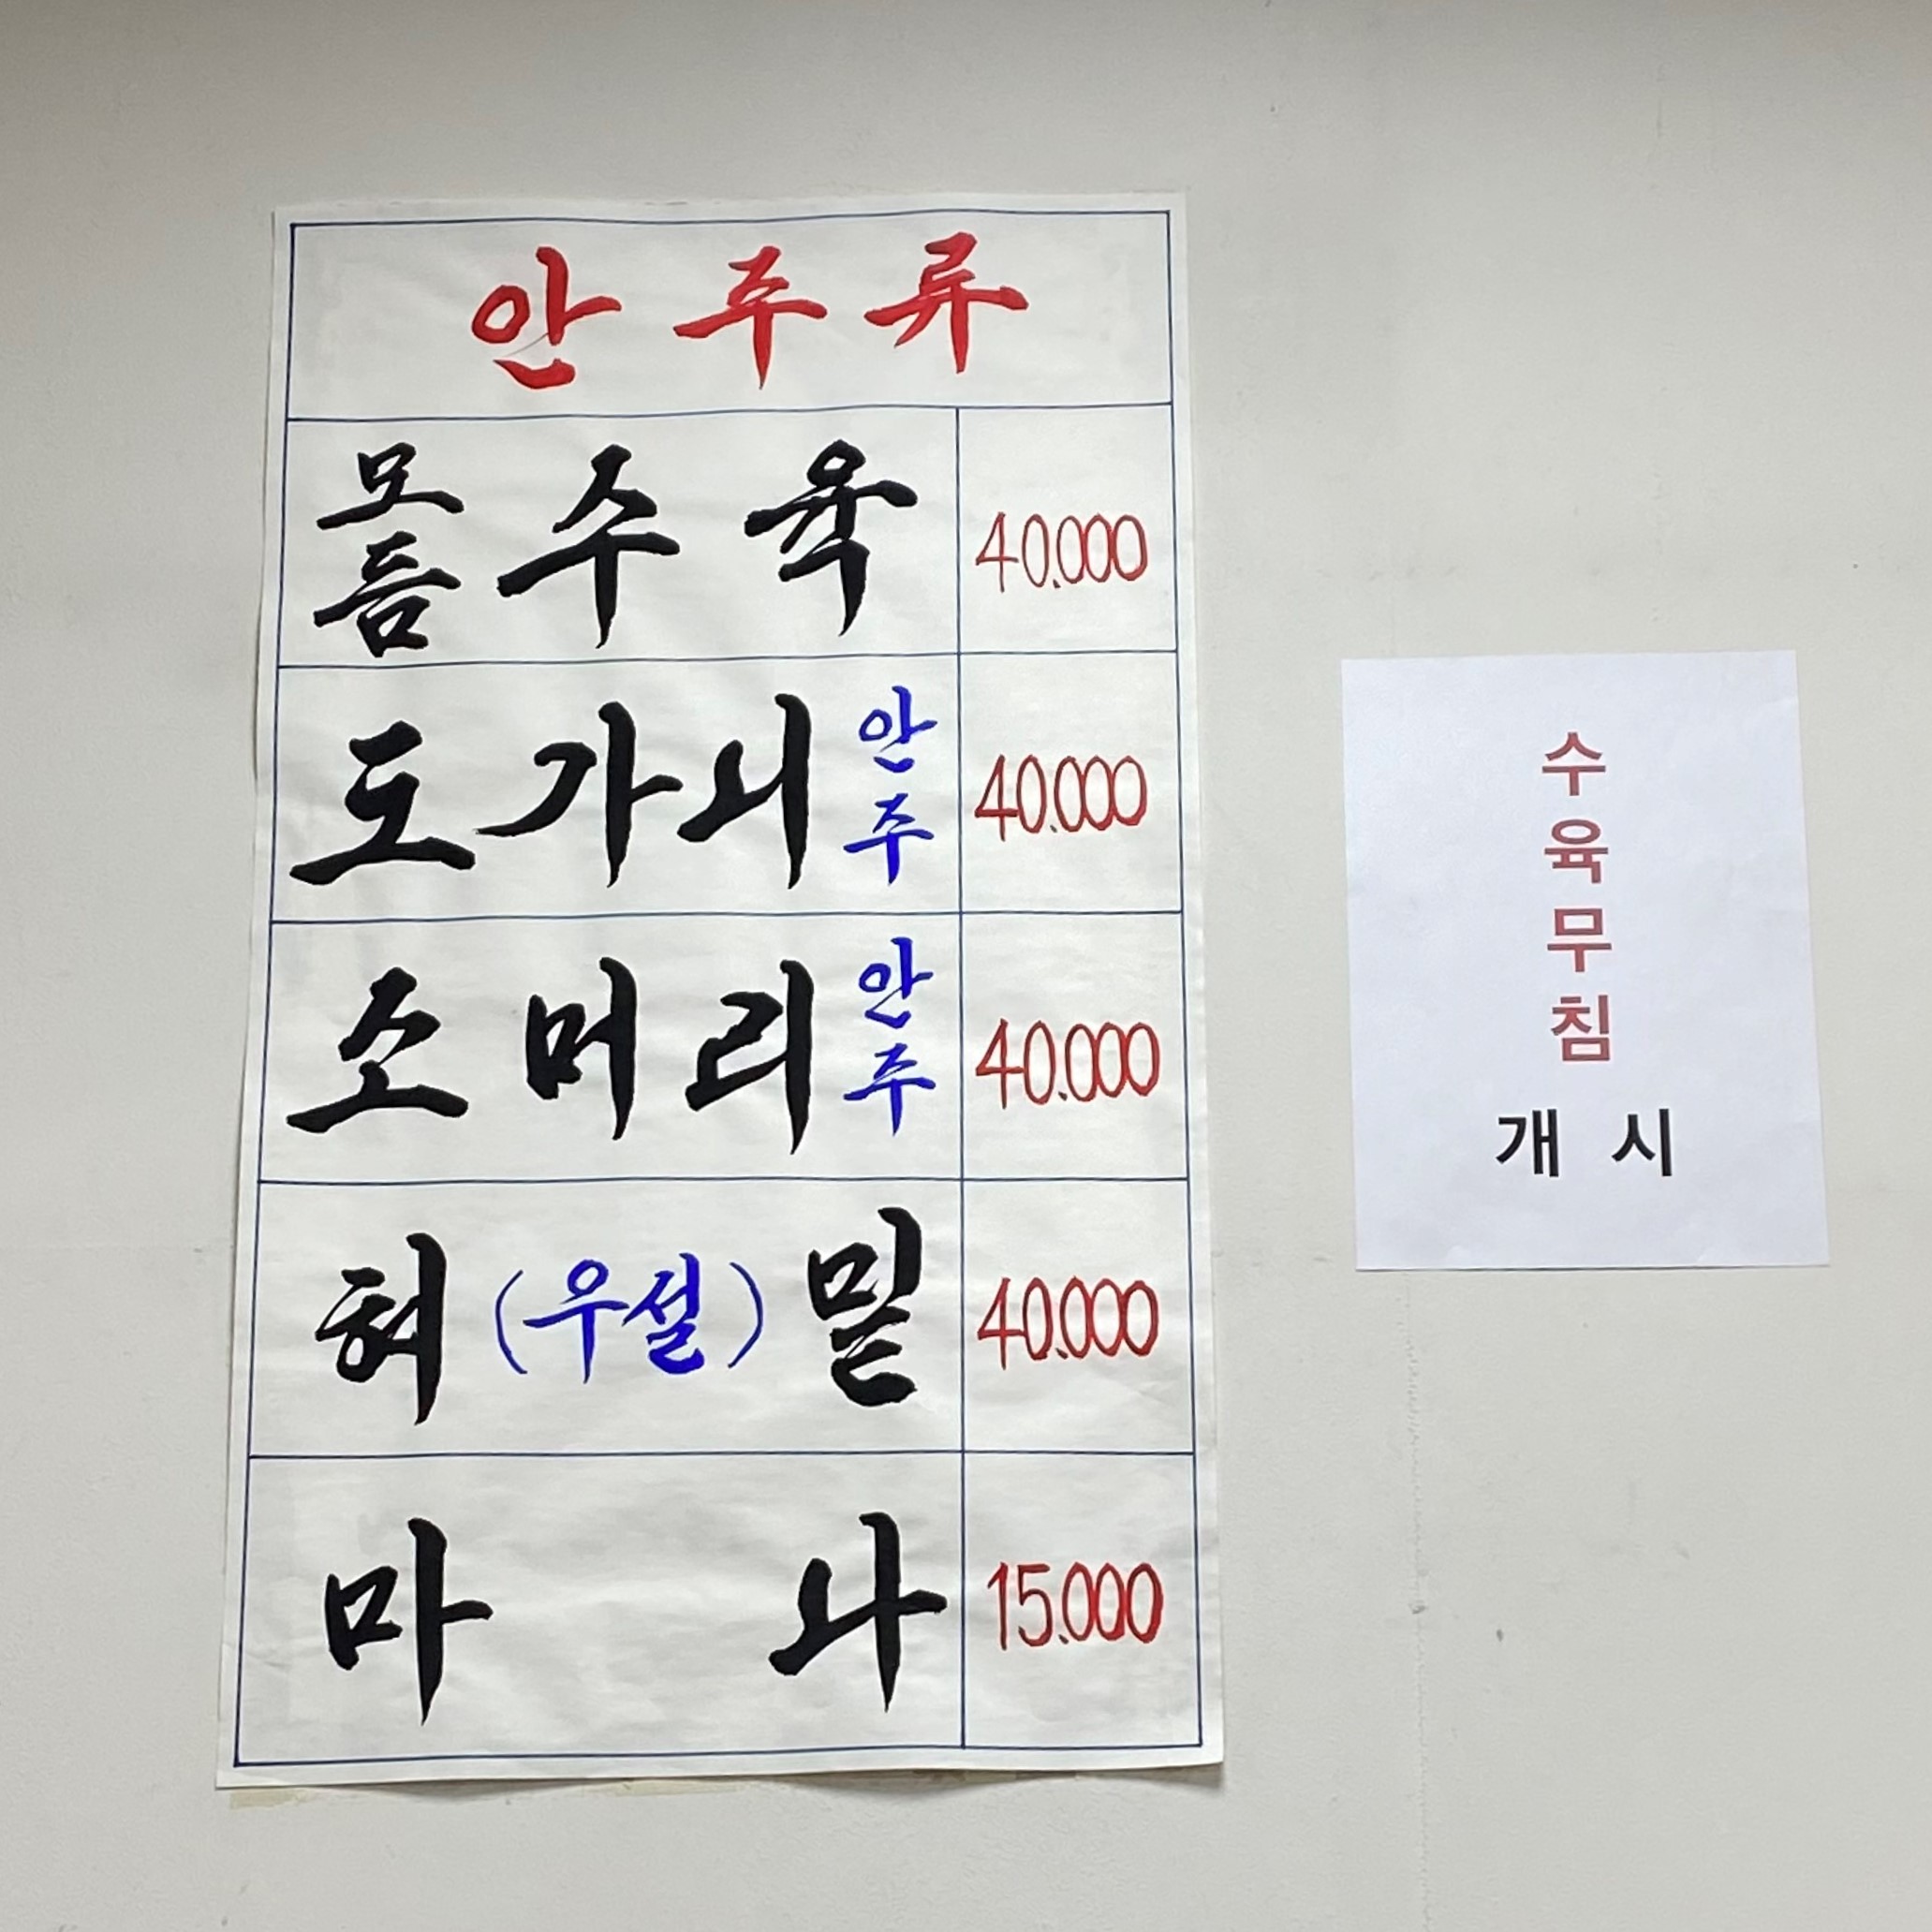 안주류
모듬수육 40.000
도가니 안주 40.000
소머리 안주 40.000
혀(우설)밑 40.000
마나 15.000
수
육
무
침
개 시